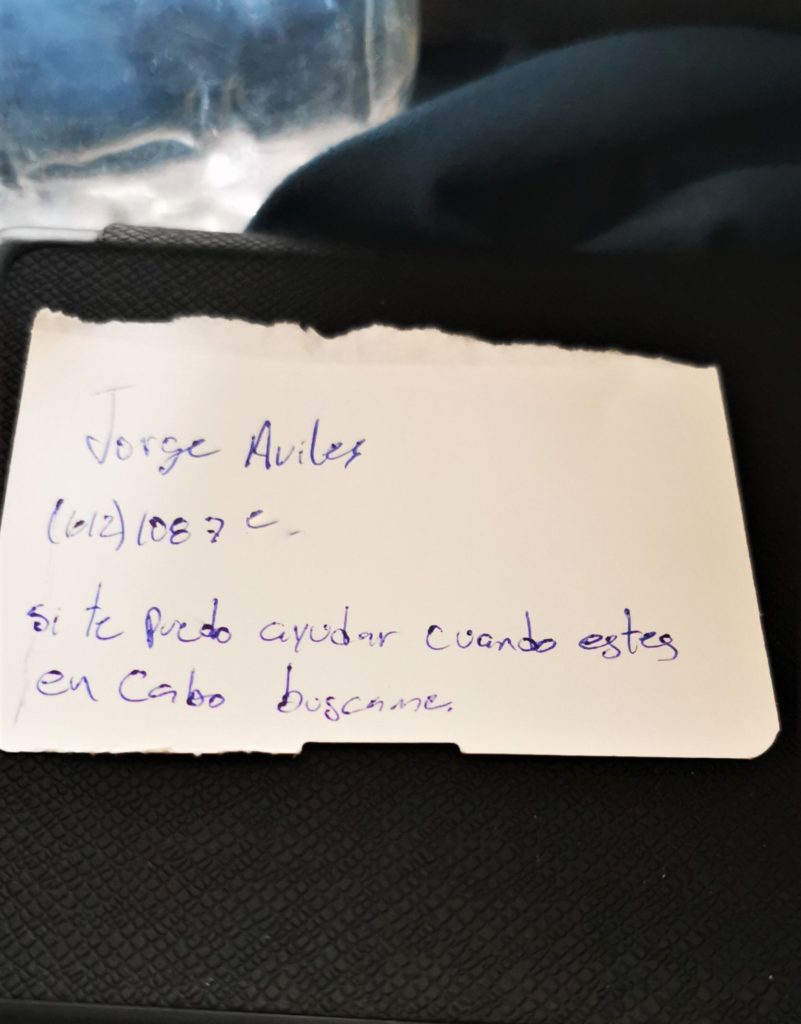 Jorge Aviles
(612) 1087
si te puedo ayudar cuando estes
en Cabo buscame.